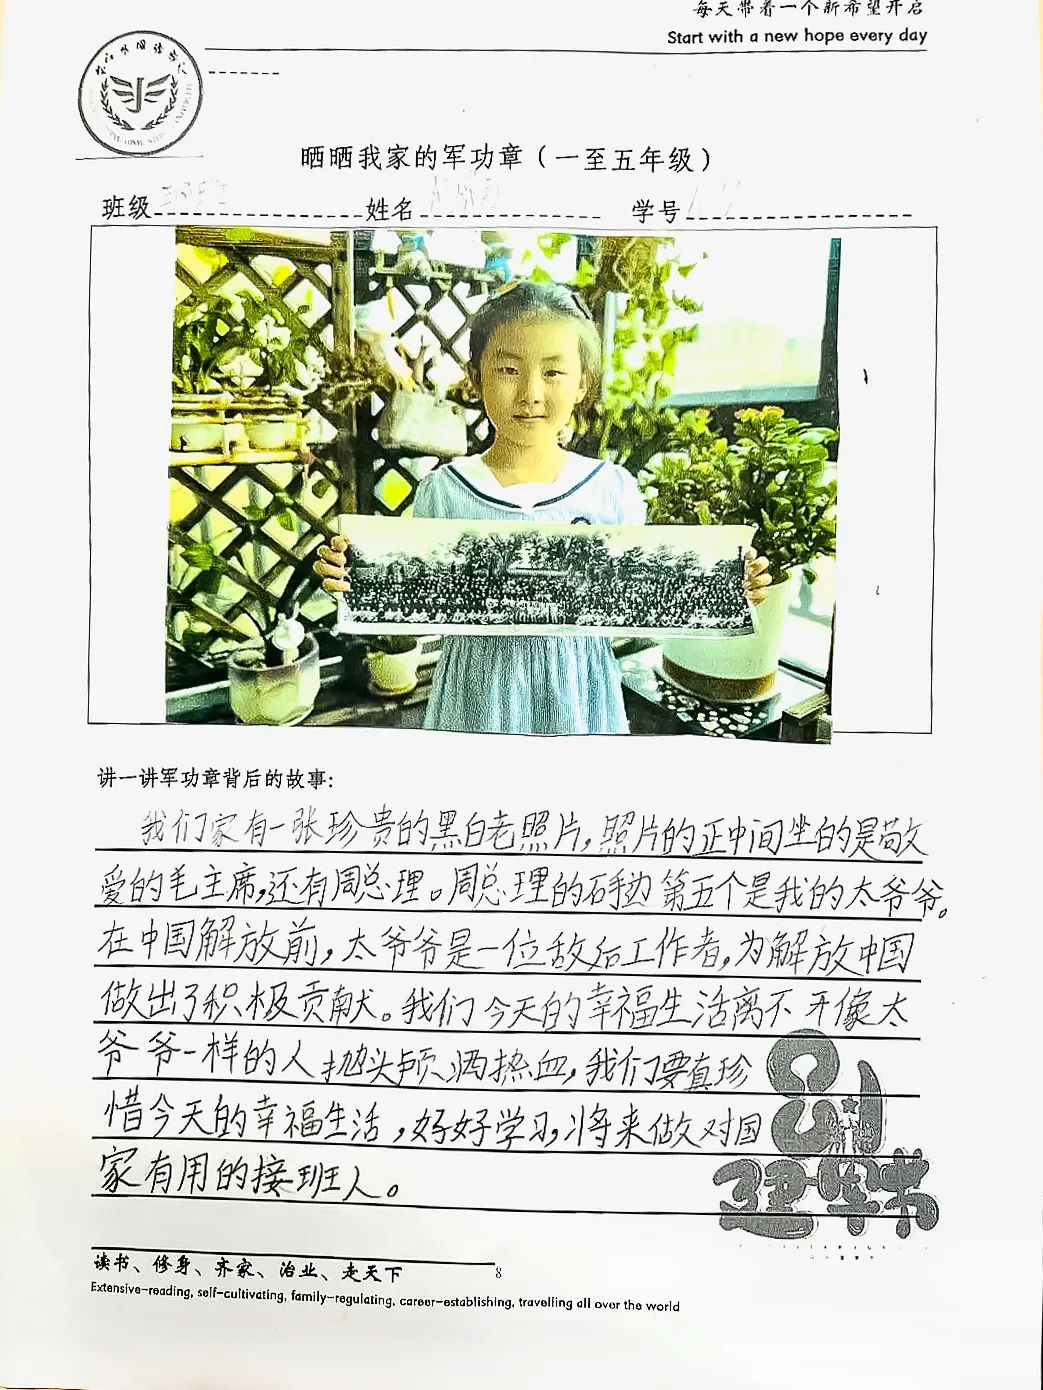 每天带着一个新希望开启
Start with a new hope every day
晒晒我家的军功章（一至五年级）
班级 姓名 学号
讲一讲军功章背后的故事:
我们家有一张珍贵的黑白老照片，照片的正中间坐的是敬
爱的毛主席，还有周总理。周总理的右手边第五个是我的太爷爷。
在中国解放前，太爷爷是一位敌后工作者，为解放中国
做出了积极贡献。我们今天的幸福生活离不开像太
爷爷一样的人抛头颅洒热血，我们要真珍
惜今天的幸福生活，好好学习，将来做对国
家有用的接班人。
81
建军节
读书、修身、齐家、治业、走天下
8
Extensive-reading, self-cultivating, family-regulating, career-establishing, travelling all over the world